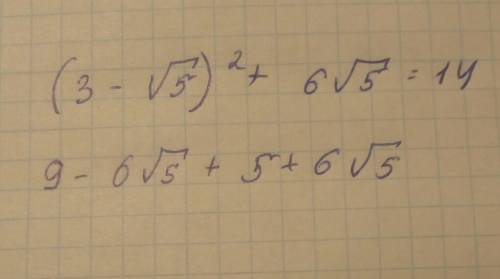 (3 - √5)² + 6√5 = 14
9 - 6√5 + 5 + 6√5